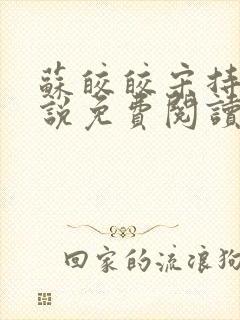 蘇皎皎宋持
說免費閱讀
回家的流浪狗